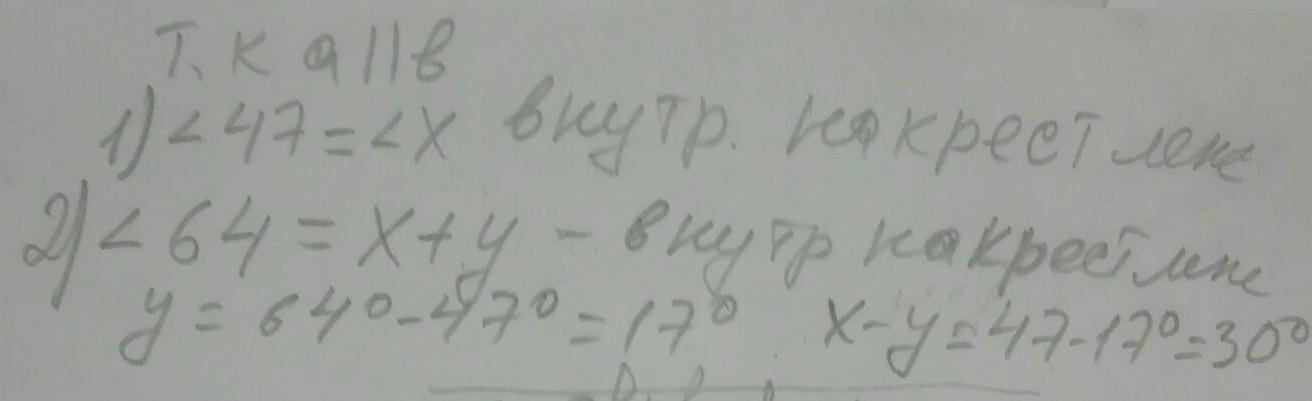 т. к a||в
1) < 47 = < х внутр. накрест леж
2) < 64 = х + у - внутр накрест леж
у = 64° - 47° = 17° х - у = 47 - 17° = 30°